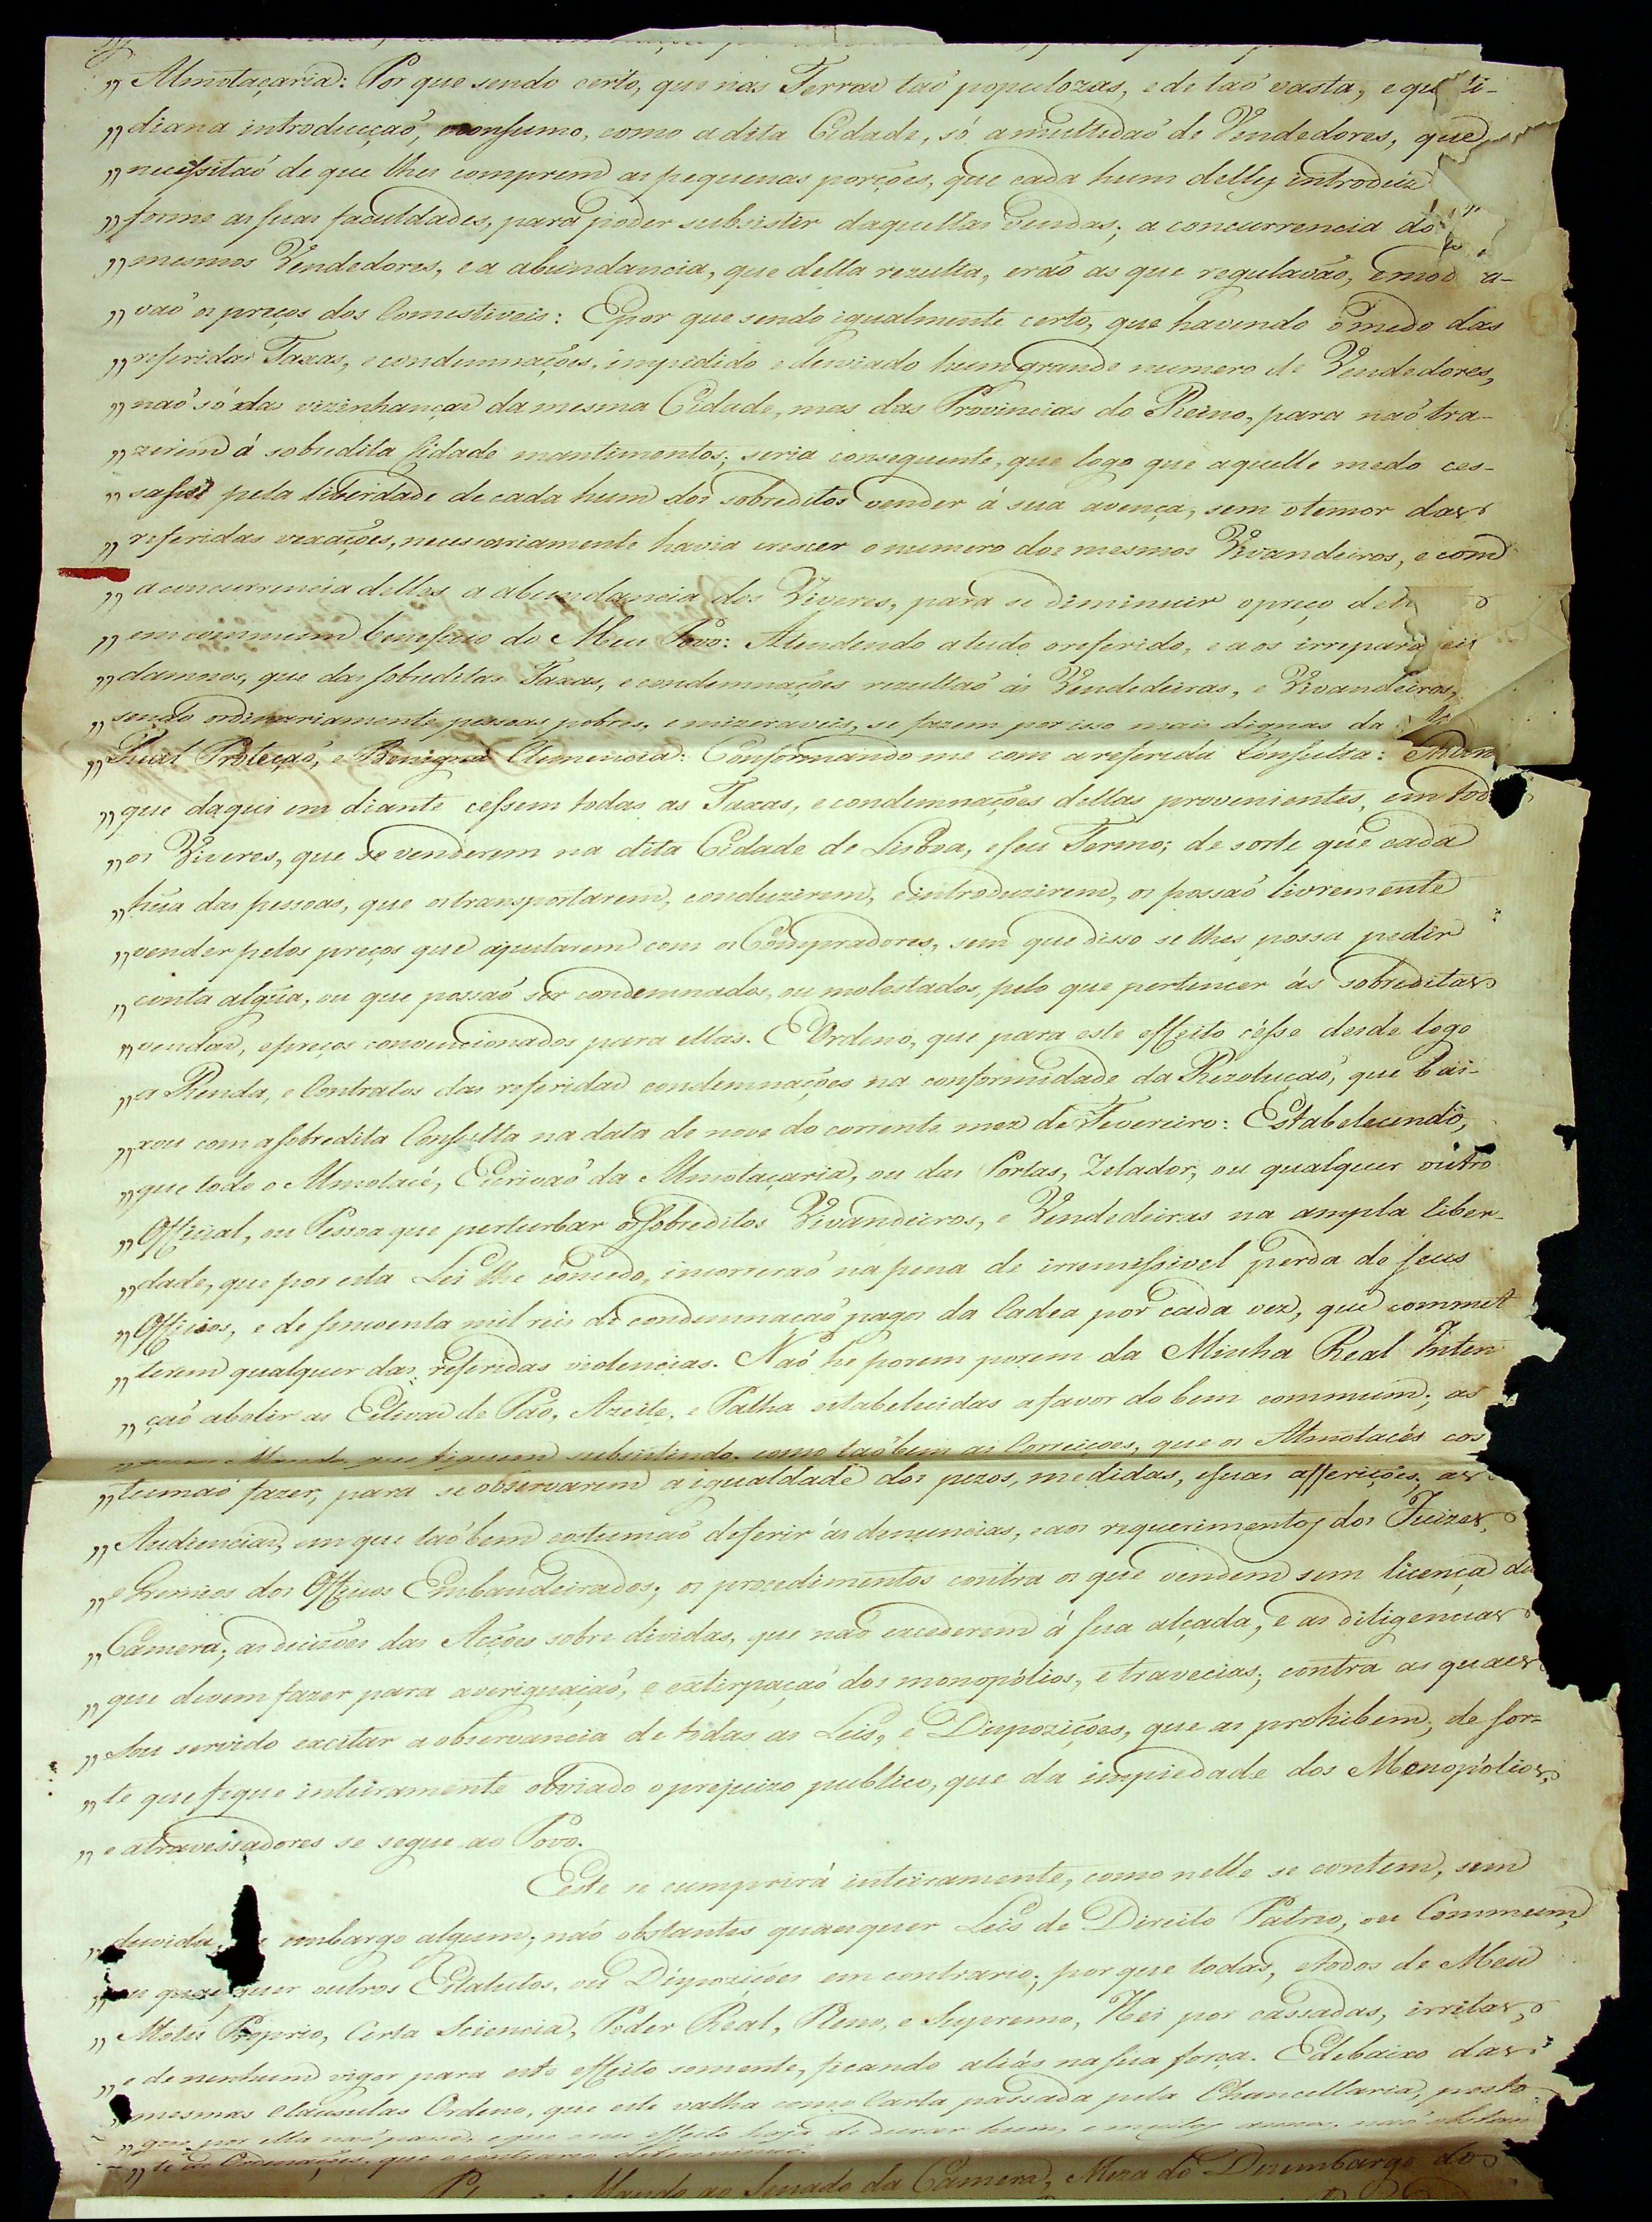 „ Almotaçaria: Por que sendo certo, que nas Terras taõ populozas, e de taõ vasta, e quoti-
„ diana introducçaõ, e consumo, como a dita Cidade, só a multidaõ de Vendedores, que
„ necessitaõ de que lhes comprem as pequenas porções, que cada hum delles introduz
„ forme as suas faculdades, para poder subsistir daquellas vendas; a concurrencia do
„ mesmos Vendedores, e a abundancia, que della rezulta, eraõ as que regulavaõ, e mod a-
„ vaõ os preços dos Comestiveis: E por que sendo igualmente certo, que havendo o medo das
„ referidas Taxas, e condemnações, impedido e desviado hum grande numero de Vendedores,
„ naõ só das vizinhanças da mesma Cidade, mas das Provincias do Reino, para naõ tra-
„ zerem á sobredita Cidade mantimentos; seria consequente, que logo que aquelle medo ces-
„ sasse pela liberdade de cada hum dos sobreditos vender á sua avença, sem o temor das
„ referidas vexações, necessariamente havia crescer o numero dos mesmos Vivandeiros, e com
„ a concurrencia delles a abundancia dos Viveres, para se diminuir o preço del
„ em commum beneficio do Meu Povo: Attendendo a tudo o referido, e aos irrepara eis
„ damnos, que das sobreditas Taxas, e condemnações rezultaõ ás Vendedeiras, e Vivandeiros,
„ sendo ordinariamente pessoas pobres, e mizeraveis, se fazem por isso mais dignas da
„ Real Protecçaõ, e Benigna Clemencia: Conformando me com a referida Consulta: Mando
„ que daqui em diante cessem todas as Taxas, e condemnações dellas provenientes, em tod
„ os Viveres, que se venderem na dita Cidade de Lisboa, e seu Termo; de sorte que cada
„ hũa das pessoas, que os transportarem, conduzirem, e introduzirem, os possaõ livremente
„ vender pelos preços que ajustarem com os Compradores, sem que disso se lhes possa pedir
„ conta algũa, ou que possaõ ser condemnados, ou molestados, pelo que pertencer ás sobreditas
„ vendas, e preços convencionados para ellas. E Ordeno, que para este effeito cesse desde logo
„ a Renda, e Contratos das referidas condemnações na conformidade da Rezoluçaõ, que bai-
„ xou com a sobredita Consulta na data de nove do corrente mez de Fevereiro: Estabelecendo,
„ que todo o Almotacé, Escrivaõ da Almotaçaria, ou das Portas, Zelador, ou qualquer outro
„ Official, ou Pessoa que perturbar os sobreditos Vivandeiros, e Vendedeiras na ampla liber-
„ dade, que por esta Lei lhe concedo, incorreraõ na pena de irremissivel perda de seus
„ Officios, e de sincoenta mil reis de condemnaçaõ pagos da Cadea por cada vez, que commet
„ terem qualquer das referidas violencias. Naõ he porem porem da Minha Real Inten
„ çaõ abolir as Estivas de Paõ, Azeite, e Palha estabelecidas a favor do bem commum; as
„ quaes Mando que fiquem subsistindo, como taõbem as Correiçoes, que os Almotacés cos
„ tumaõ fazer, para se observarem a igualdade dos pezos, medidas, e suas afferições; as
„ Audiencias, em que taõbem costumaõ deferir ás denuncias, e aos requerimentos dos Juizes,
„ e Gremios dos Officios Embandeirados; os procedimentos contra os que vendem sem licença da
„ Camera; as decizões das Acções sobre dividas, que naõ excederem á sua alçada; e as diligencias
„ que devem fazer para averiguaçaõ, e extirpaçaõ dos monopólios, e travecias; contra as quaes
„ Sou servido excitar a observancia de todas as Leis, e Dispozições, que as prohibem; de sor-
„ te que fique inteiramente obviado o prejuizo publico, que da impiedade dos Monopólios,
„ e atravessadores se segue ao Povo.
E este se cumprirá inteiramente, como nelle se contem, sem
„ duvida, embargo algum; naõ obstantes quaesquer Leis de Direito Patrio, ou Commum,
„ ou quaesquer outros Estatutos, ou Dispozições em contrario; por que todas, e todos de Meu
„ Motu Proprio, Certa Sciencia, Poder Real, Pleno, e Supremo, Hei por cassadas, irritas,
„ e de nenhum vigor para este effeito somente, ficando aliás na sua força. E debaixo das
„ mesmas clausulas Ordeno, que este valha como Carta passada pela Chancellaria, posto
„ que por ella naõ passe, e que o seu effeito haja de durar hum, e muitos annos, naõ obstan
„ te as Ordenações, que o contrario determinaõ.
Mando ao Senado da Camera, Meza do Dezembargo do